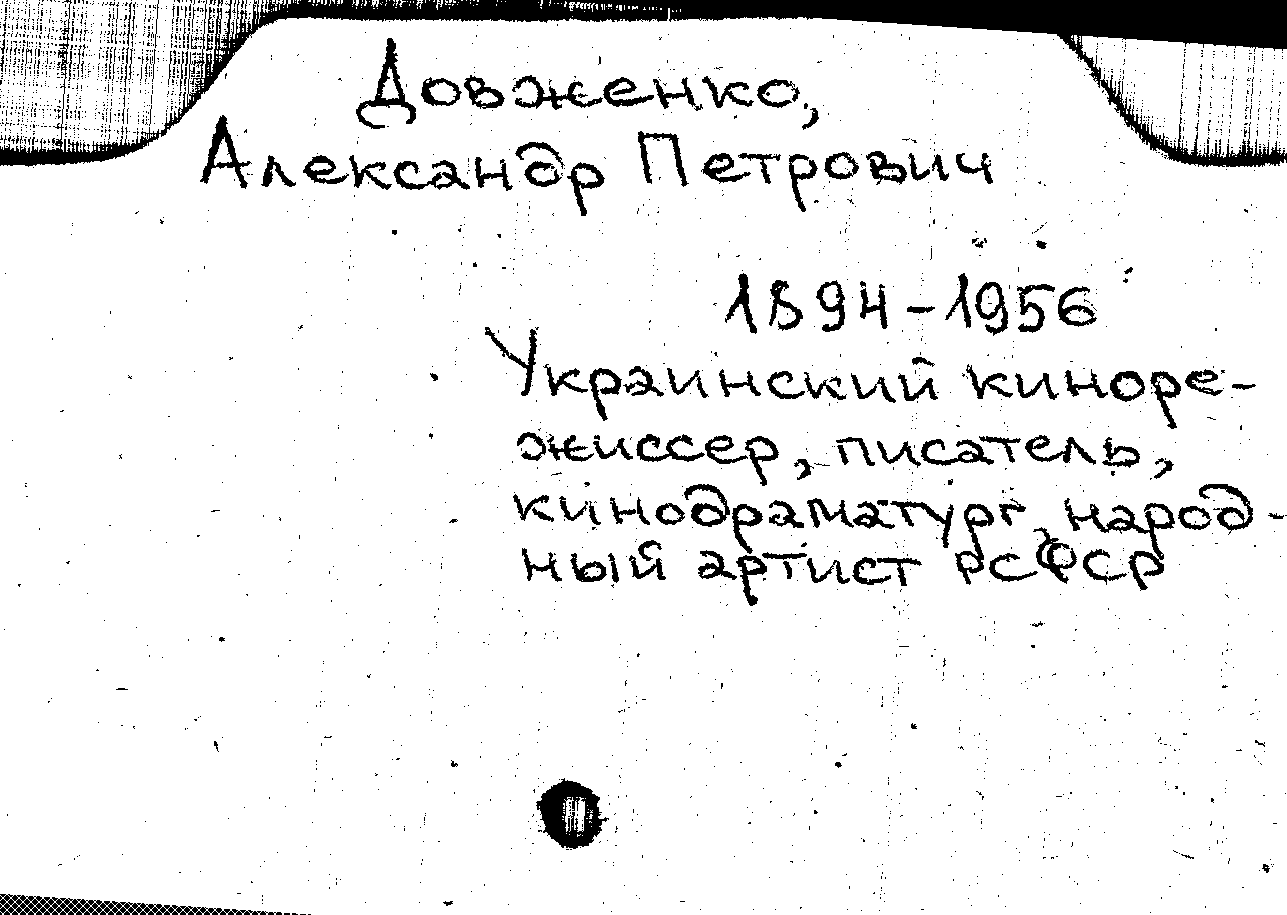 Довженко,
Александр Петрович
1894-1956
Украинский киноре-
жиссер, писатель,
кинодраматург, народ-
ный артист РСФСР